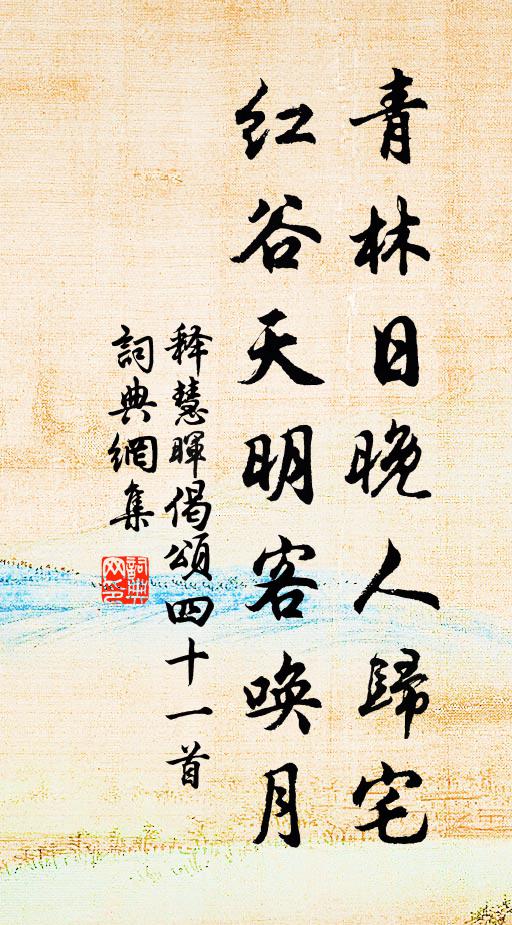 青林日晚人歸宅
红谷天明客唤月
释慧暉偈頌四十一首
詞典網集
詞典網印